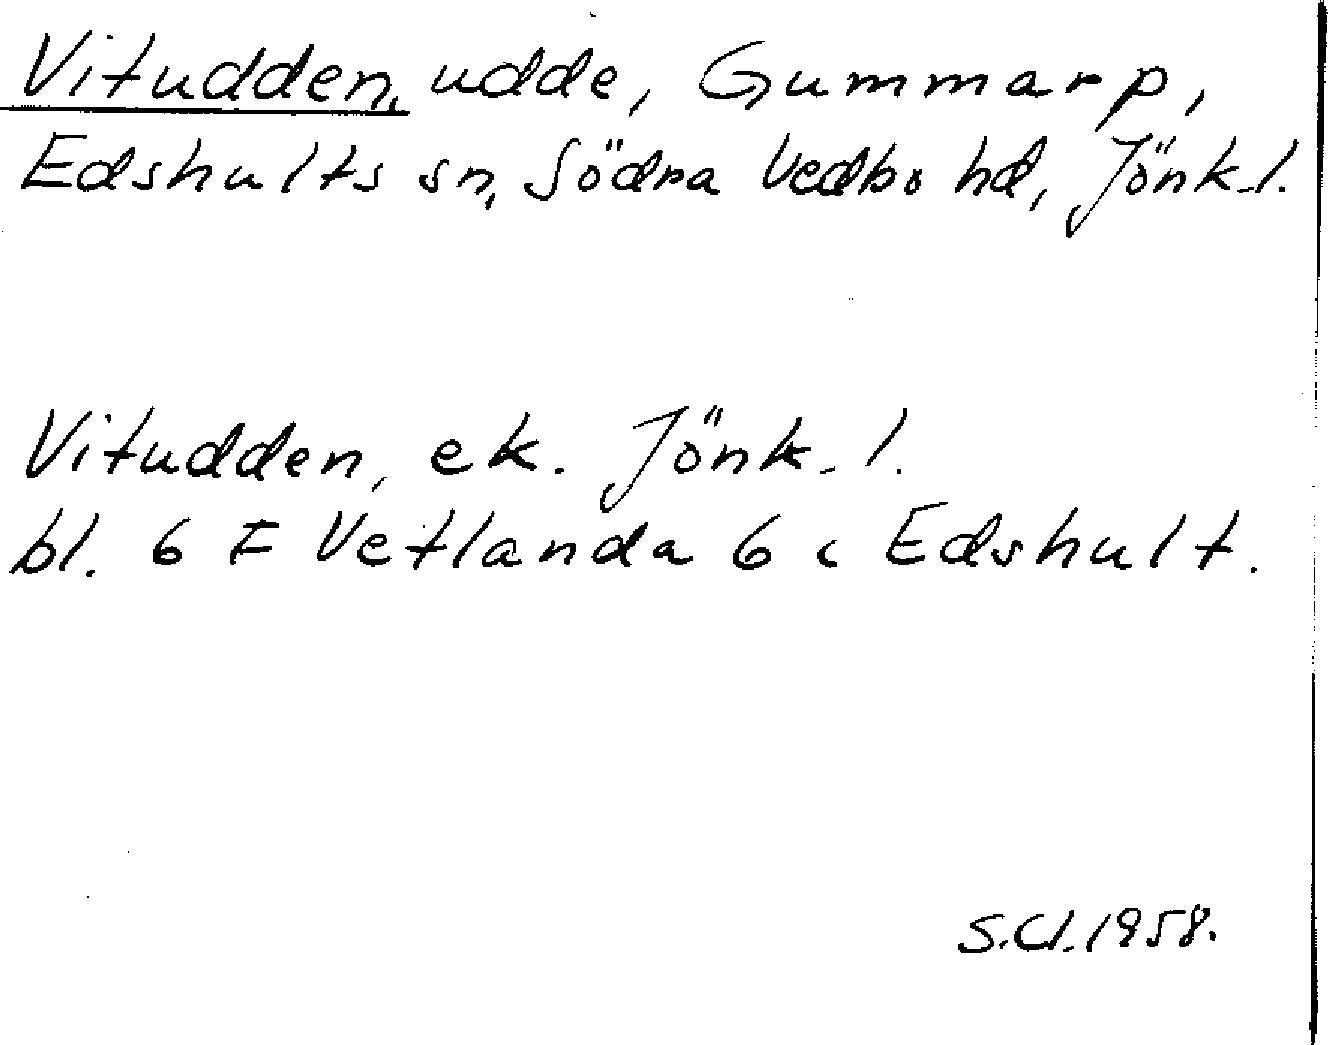 Vitudden, udde, Gummarp,
Edshults sn, Södra Vedbo hd, Jönk. l.
Vitudden, ek. Jönk. l.
bl. 6 F Vetlanda 6 c Edshult.
S.Cl. 1958.